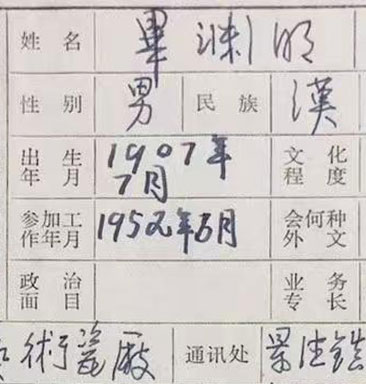 姓名 畢渊明
性别 男 民族 漢
出生年月 1907年7月 文化程度
参加工作年月 1952年 月 会何种外文
政治面目 业务专长
術瓷廠 通讯处 景德镇